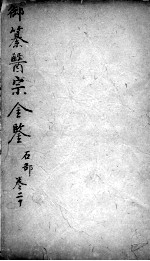 御纂醫宗金鑒
石部 卷二下